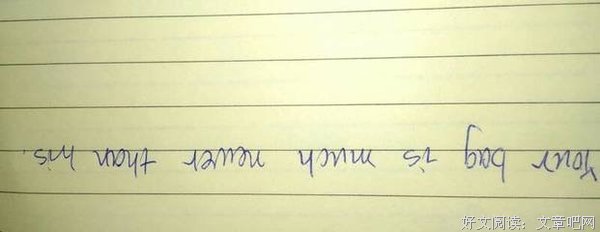 Your bag is much newer than his.
好文阅读：文章吧网